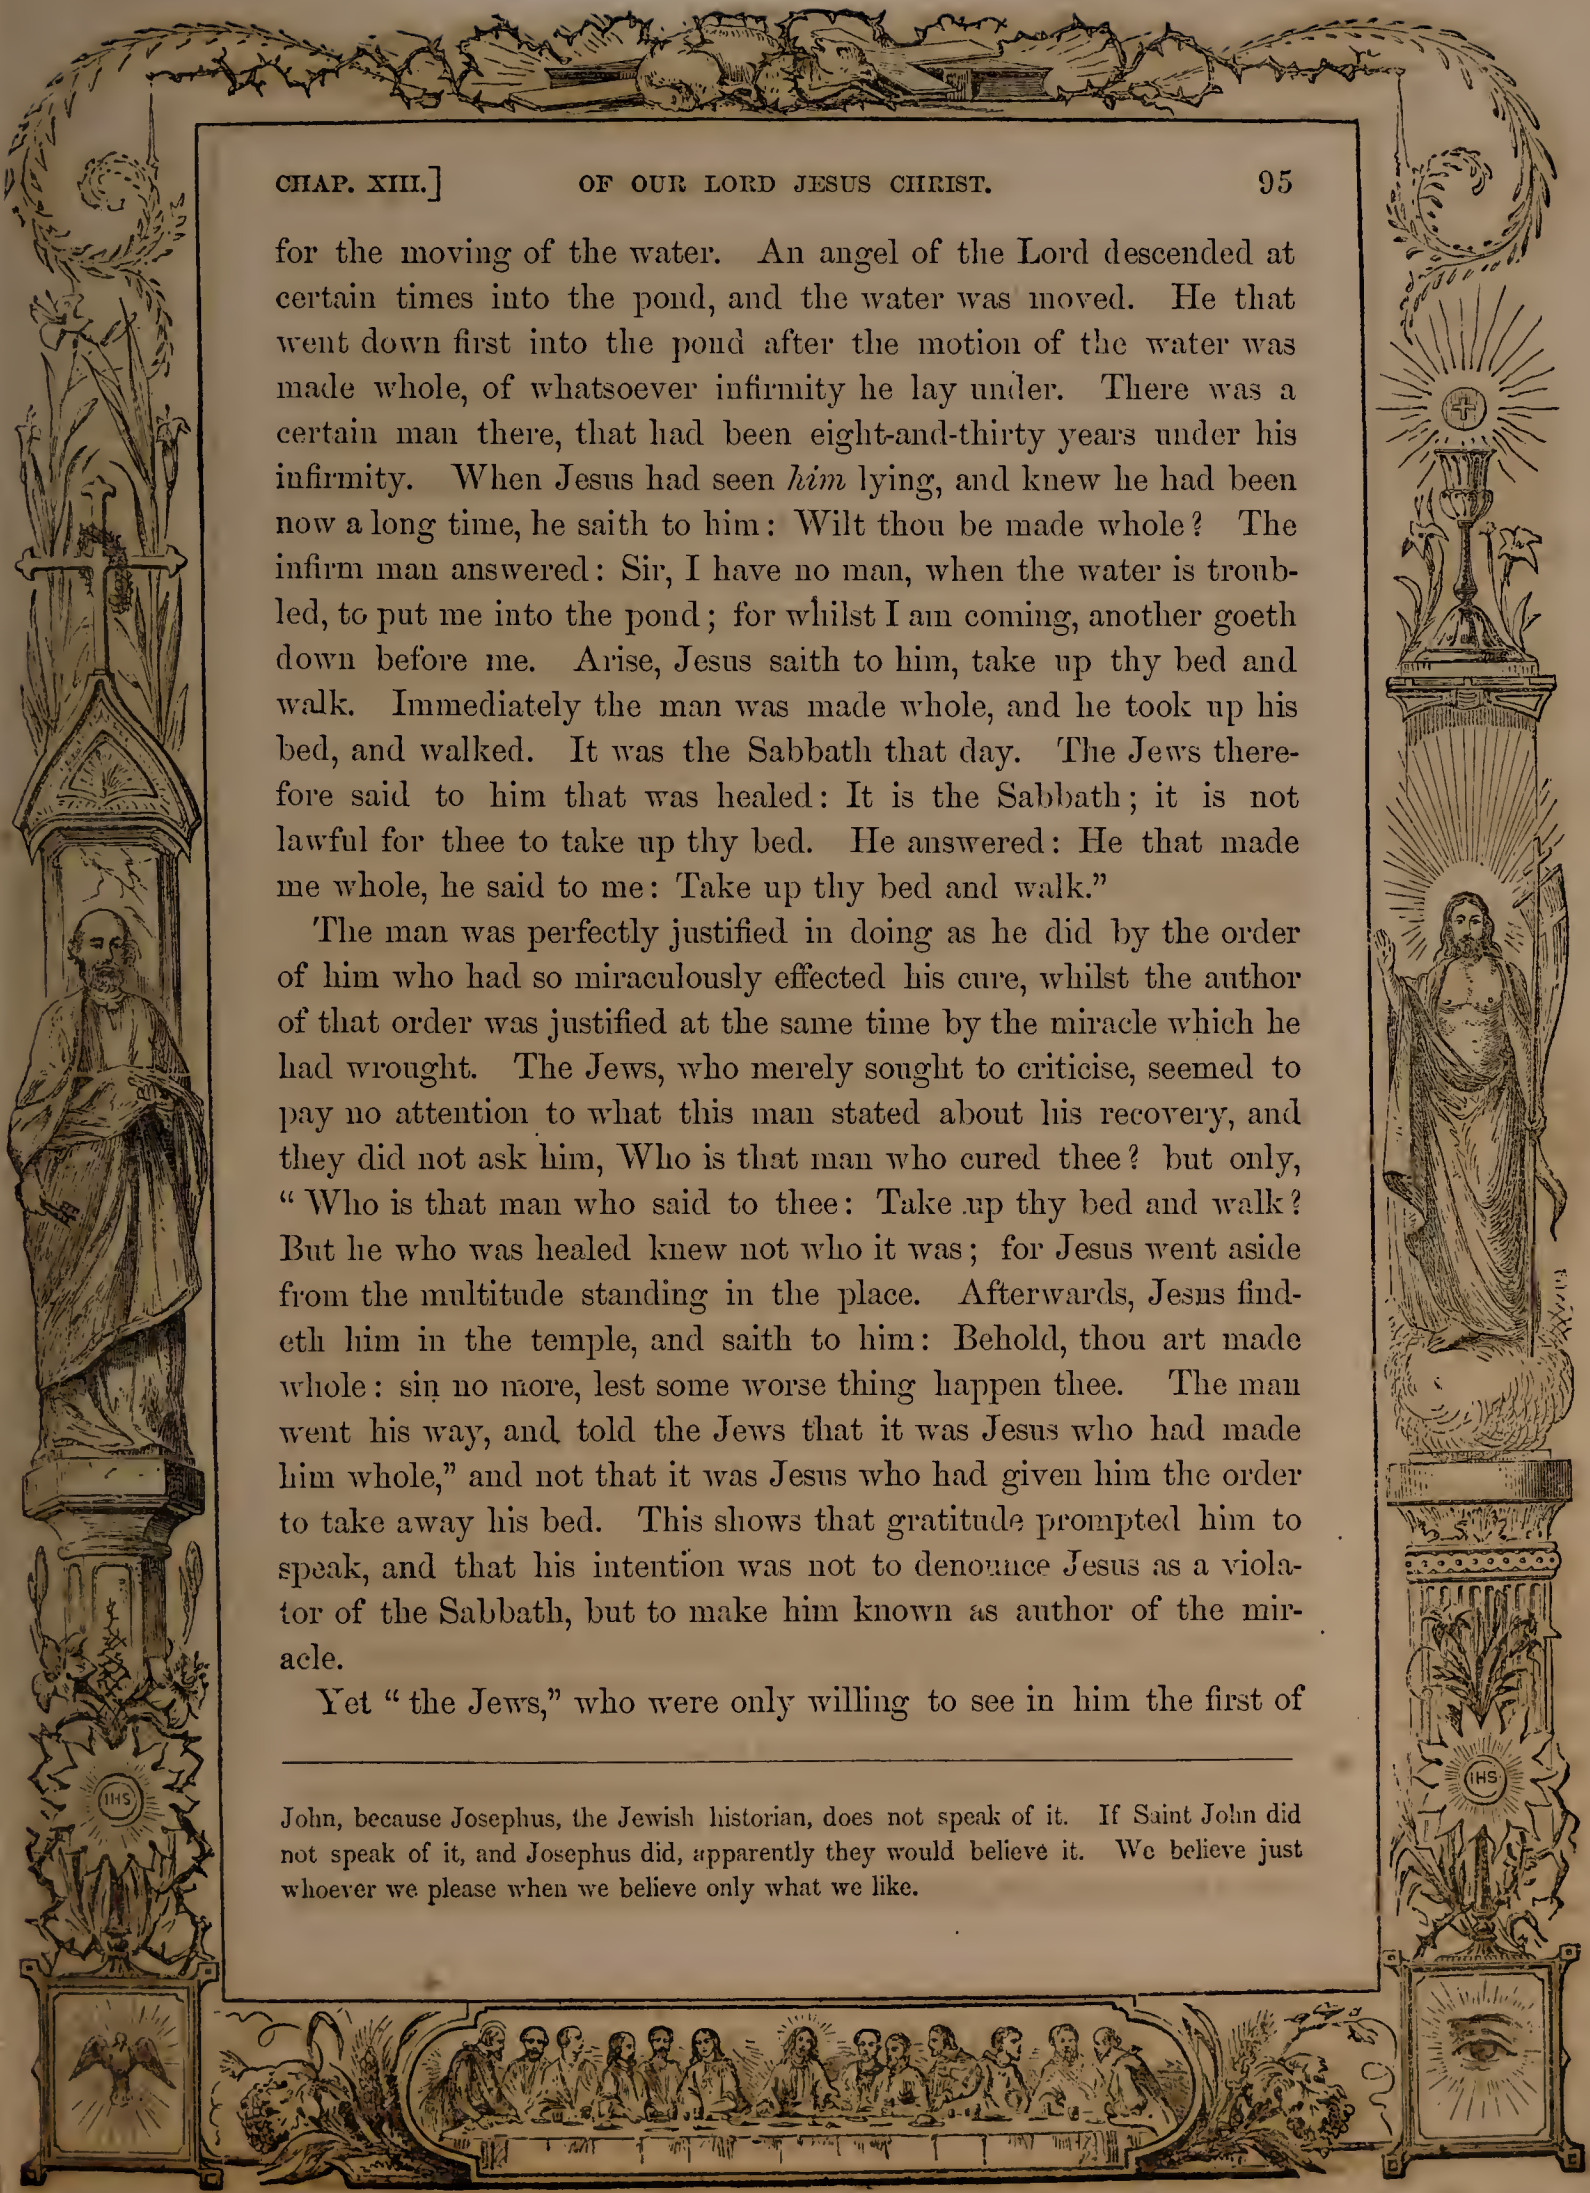 CHAP. XIII.] OF OUR LORD JESUS CHRIST. 95
for the moving of the water. An angel of the Lord descended at
certain times into the pond, and the water was moved. He that
went down first into the pond after the motion of the water was
made whole, of whatsoever infirmity he lay under. There was a
certain man there, that had been eight-and-thirty years under his
infirmity. When Jesus had seen him lying, and knew he had been
now a long time, he saith to him: Wilt thou be made whole? The
infirm man answered: Sir, I have no man, when the water is troub-
led, to put me into the pond; for whilst I am coming, another goeth
down before me. Arise, Jesus saith to him, take up thy bed and
walk. Immediately the man was made whole, and he took up his
bed, and walked. It was the Sabbath that day. The Jews there-
fore said to him that was healed: It is the Sabbath; it is not
lawful for thee to take up thy bed. He answered: He that made
me whole, he said to me: Take up thy bed and walk.”
The man was perfectly justified in doing as he did by the order
of him who had so miraculously effected his cure, whilst the author
of that order was justified at the same time by the miracle which he
had wrought. The Jews, who merely sought to criticise, seemed to
pay no attention to what this man stated about his recovery, and
they did not ask him, Who is that man who cured thee? but only,
“Who is that man who said to thee: Take up thy bed and walk?
But he who was healed knew not who it was; for Jesus went aside
from the multitude standing in the place. Afterwards, Jesus find-
eth him in the temple, and saith to him: Behold, thou art made
whole: sin no more, lest some worse thing happen thee. The man
went his way, and told the Jews that it was Jesus who had made
him whole,” and not that it was Jesus who had given him the order
to take away his bed. This shows that gratitude prompted him to
speak, and that his intention was not to denounce Jesus as a viola-
tor of the Sabbath, but to make him known as author of the mir-
acle.
Yet “the Jews,” who were only willing to see in him the first of
John, because Josephus, the Jewish historian, does not speak of it. If Saint John did
not speak of it, and Josephus did, apparently they would believe it. We believe just
whoever we please when we believe only what we like.
IHS
IHS